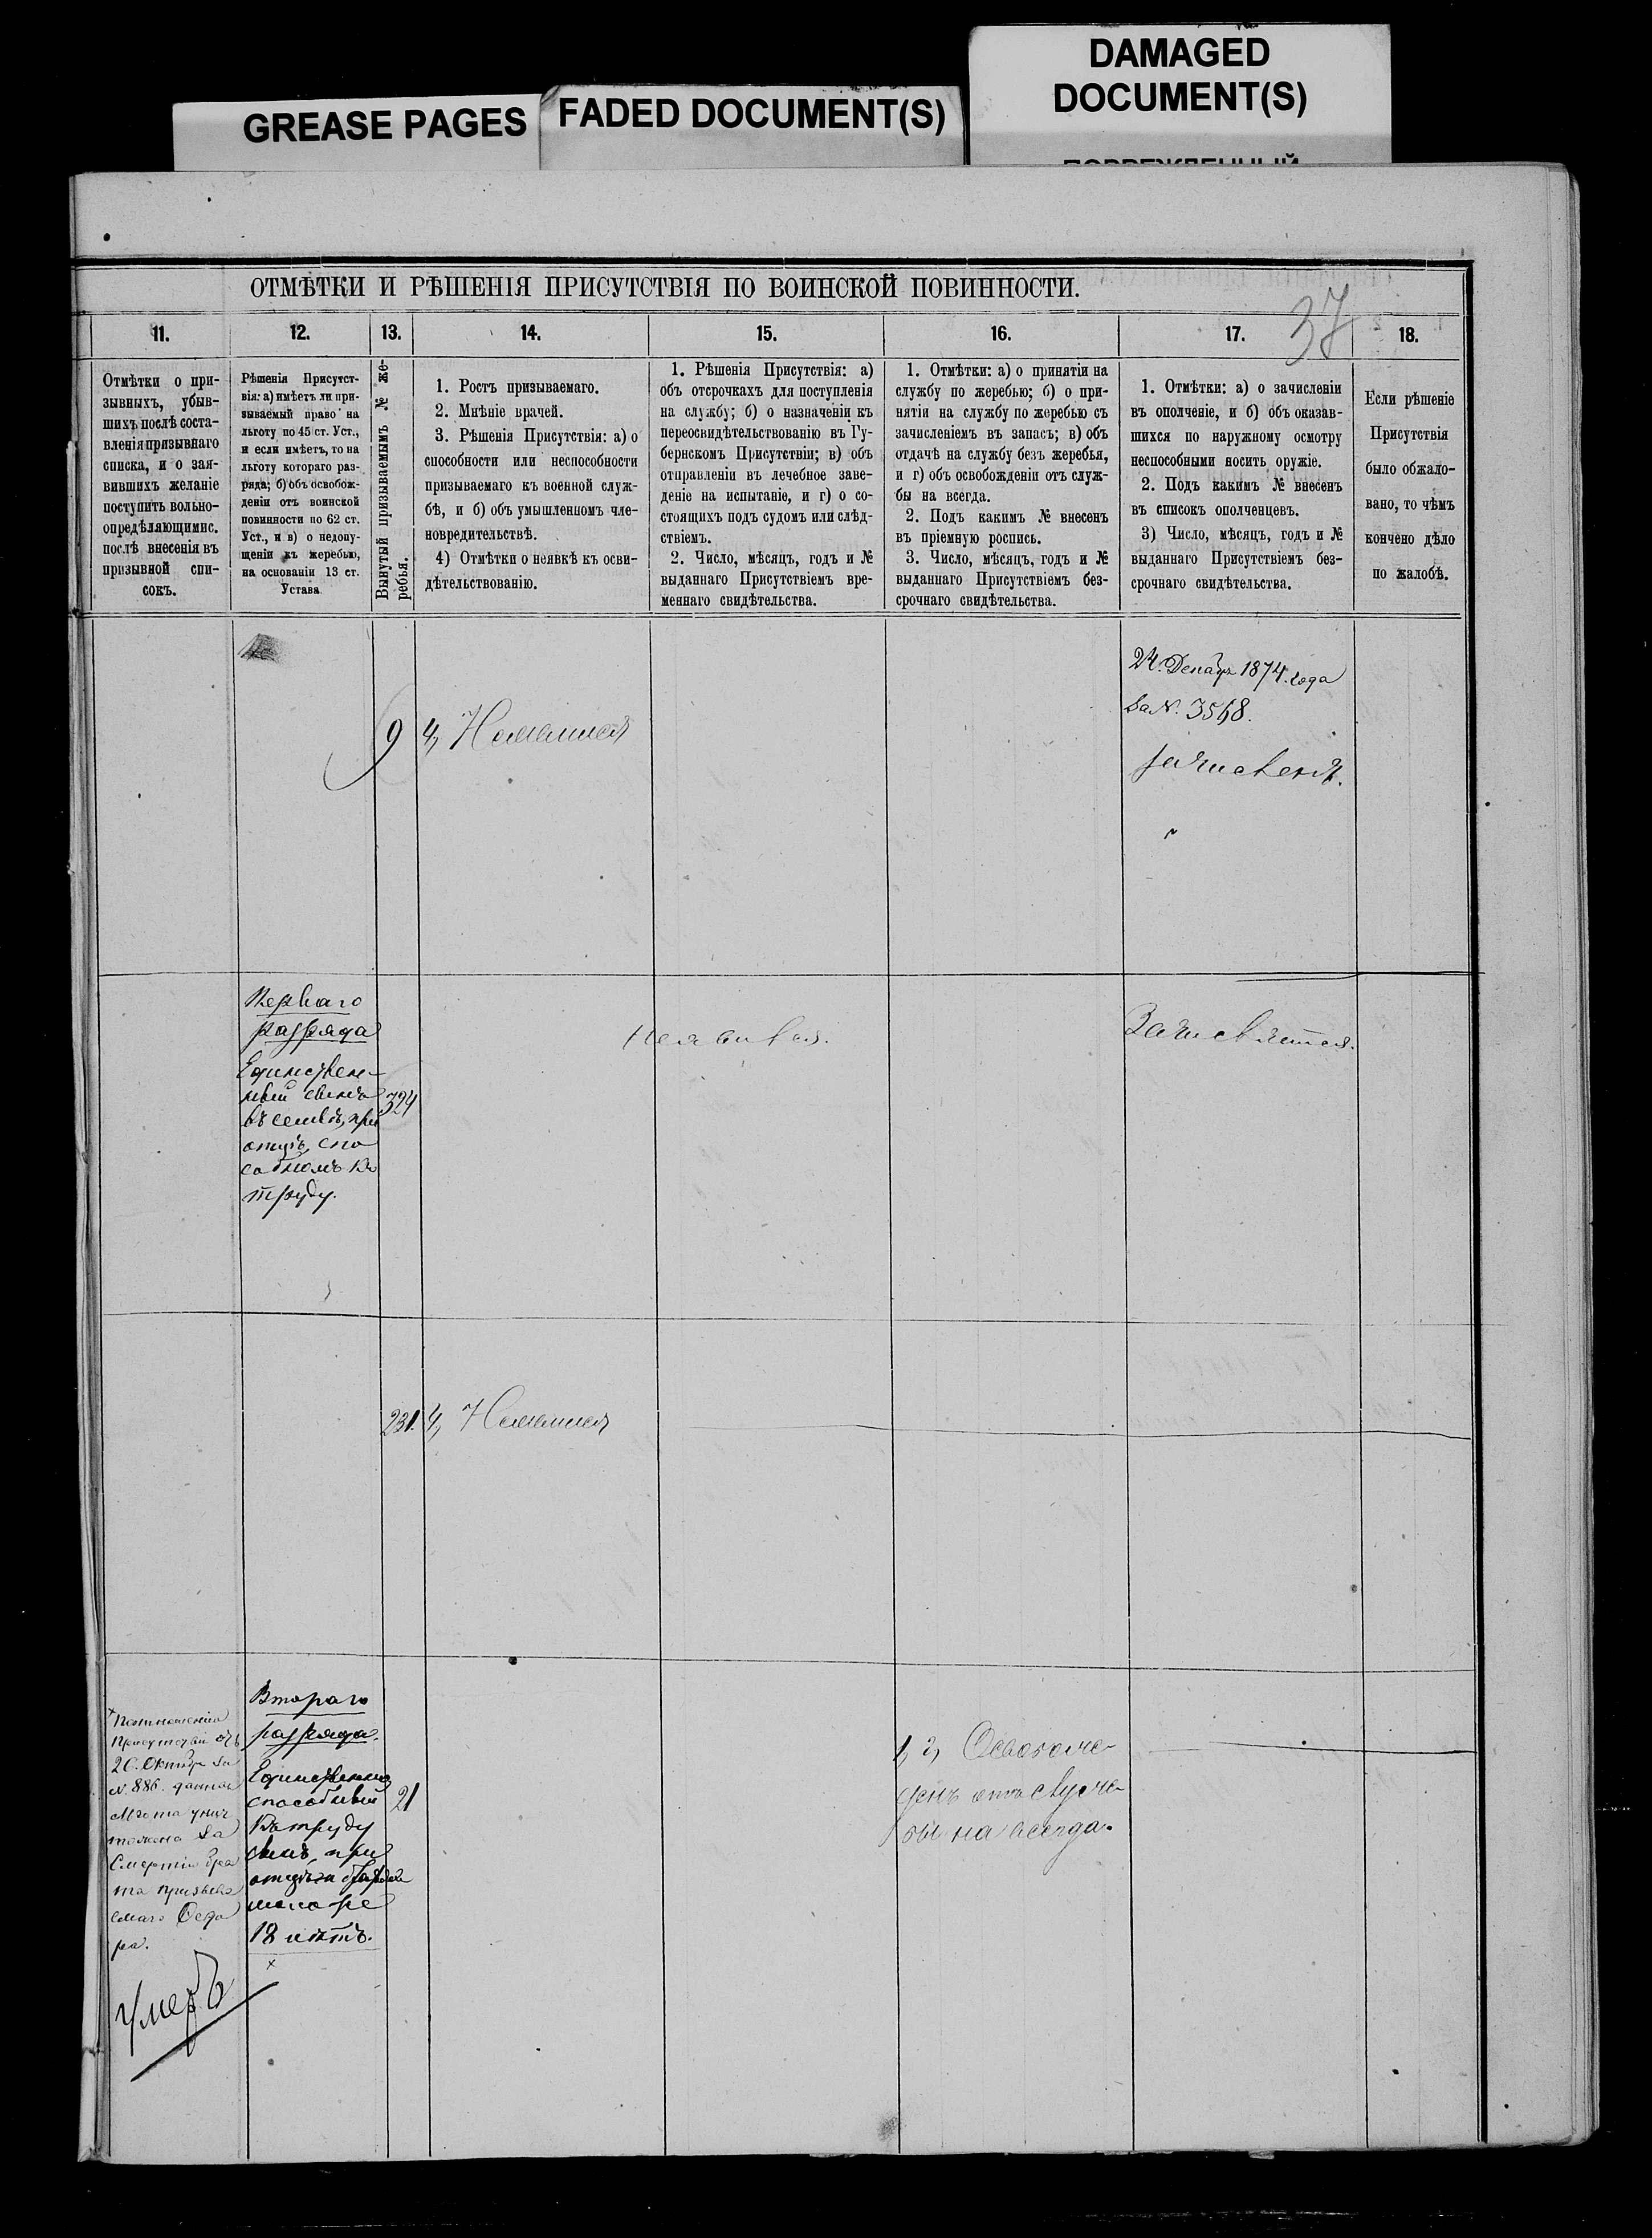 DAMAGED
DOCUMENT(S)
GREASE PAGES
FADED DOCUMENT(S)
ОТМѢТКИ И РѢШЕНІЯ ПРИСУТСТВІЯ ПО ВОИНСКОЙ ПОВИННОСТИ.
37
11.
12.
13.
14.
15.
16.
17.
18.
Отмѣтки о при-
зывныхъ, убыв-
шихъ послѣ соста-
вленія призывнаго
списка, и о зая-
вившихъ желаніе
поступить вольно-
опредѣляющимис.
послѣ внесенія въ
призывной спи-
сокъ.
Рѣшенія Присутст-
вія: а) имѣетъ ли при-
зываемый право на
льготу по 45 ст. Уст.,
и если имѣетъ, то на
льготу котораго раз-
ряда; б) объ освобож-
деніи отъ воинской
повинности по 62 ст.
Уст., и в) о недопу-
щеніи къ жеребью,
на основаніи 13 ст.
Устава
Вынутый призываемымъ № же-
ребья.
1. Ростъ призываемаго.
2. Мнѣніе врачей.
3. Рѣшенія Присутствія: а) о
способности или неспособности
призываемаго къ военной служ-
бѣ, и б) объ умышленномъ чле-
новредительствѣ.
4) Отмѣтки о неявкѣ къ осви-
дѣтельствованію.
1. Рѣшенія Присутствія: а)
объ отсрочкахъ для поступленія
на службу; б) о назначеніи къ
переосвидѣтельствованію въ Гу-
бернскомъ Присутствіи; в) объ
отправленіи въ лечебное заве-
деніе на испытаніе, и г) о со-
стоящихъ подъ судомъ или слѣд-
ствіемъ.
2. Число, мѣсяцъ, годъ и №
выданнаго Присутствіемъ вре-
меннаго свидѣтельства.
1. Отмѣтки: а) о принятіи на
службу по жеребью; б) о при-
нятіи на службу по жеребью съ
зачисленіемъ въ запасъ; в) объ
отдачѣ на службу безъ жеребья,
и г) объ освобожденіи отъ служ-
бы на всегда.
2. Подъ какимъ № внесенъ
въ пріемную роспись.
3. Число, мѣсяцъ, годъ и №
выданнаго Присутствіемъ без-
срочнаго свидѣтельства.
1. Отмѣтки: а) о зачисленіи
въ ополченіе, и б) объ оказав-
шихся по наружному осмотру
неспособными носить оружіе.
2. Подъ какимъ № внесенъ
въ списокъ ополченцевъ.
3) Число, мѣсяцъ, годъ и №
выданнаго Присутствіемъ без-
срочнаго свидѣтельства.
Если рѣшеніе
Присутствія
было обжало-
вано, то чѣмъ
кончено дѣло
по жалобѣ.
9
4,
24. Декабр 1874. года
за №. 3568.
Перваго
разряда
Единствен-
ный сынъ
въ семьѣ, при
отцѣ, спо
собномъ къ
труду.
324
231.
4,
Присутствія отъ
20. Октября за
№ 886. данная
льгота унич
тожена за
Смертію бра
та призыва
емаго Ѳедо
ра.
Умеръ
Втораго
разряда.
Единственно
способный
къ труду
сынъ, при
отцѣ и братѣ
моложе
18 лѣтъ.
х
21
1, г, Освобож-
денъ отъ служ-
бы на всегда.